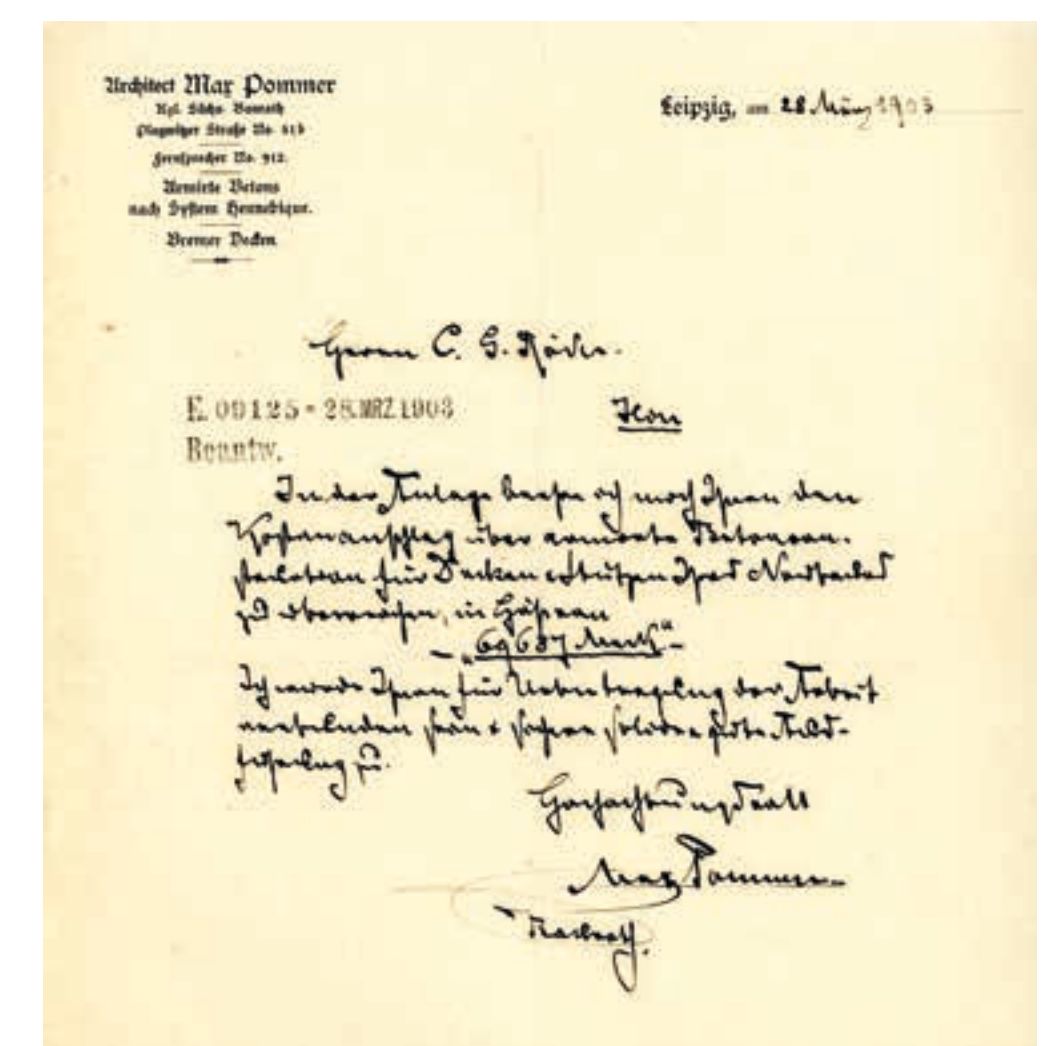 Architect Max Pommer
Kgl. Sächs. Baurath
Plagwitzer Straße No.
Fernsprecher No. 912.
Armirte Betons
nach System Hennebique.
Bremer Decken
Leipzig, am 28. März 1903
Herrn C. G. Röder.
E. 09125 - 28. MRZ. 1903
Hier
Beantw.
In der Anlage beehre ich mich Ihnen den
Kostenanschlag über armirte Betoncon-
struktion für Decken & Stützen Ihres Neubaues
zu überreichen, in Höhe von
- „69637 Mark“ -
Ich werde Ihnen für Uebertragung der Arbeit
verbunden sein & sichere solide & gute Aus-
führung zu.
Hochachtungsvoll
Max Pommer
Baurath.